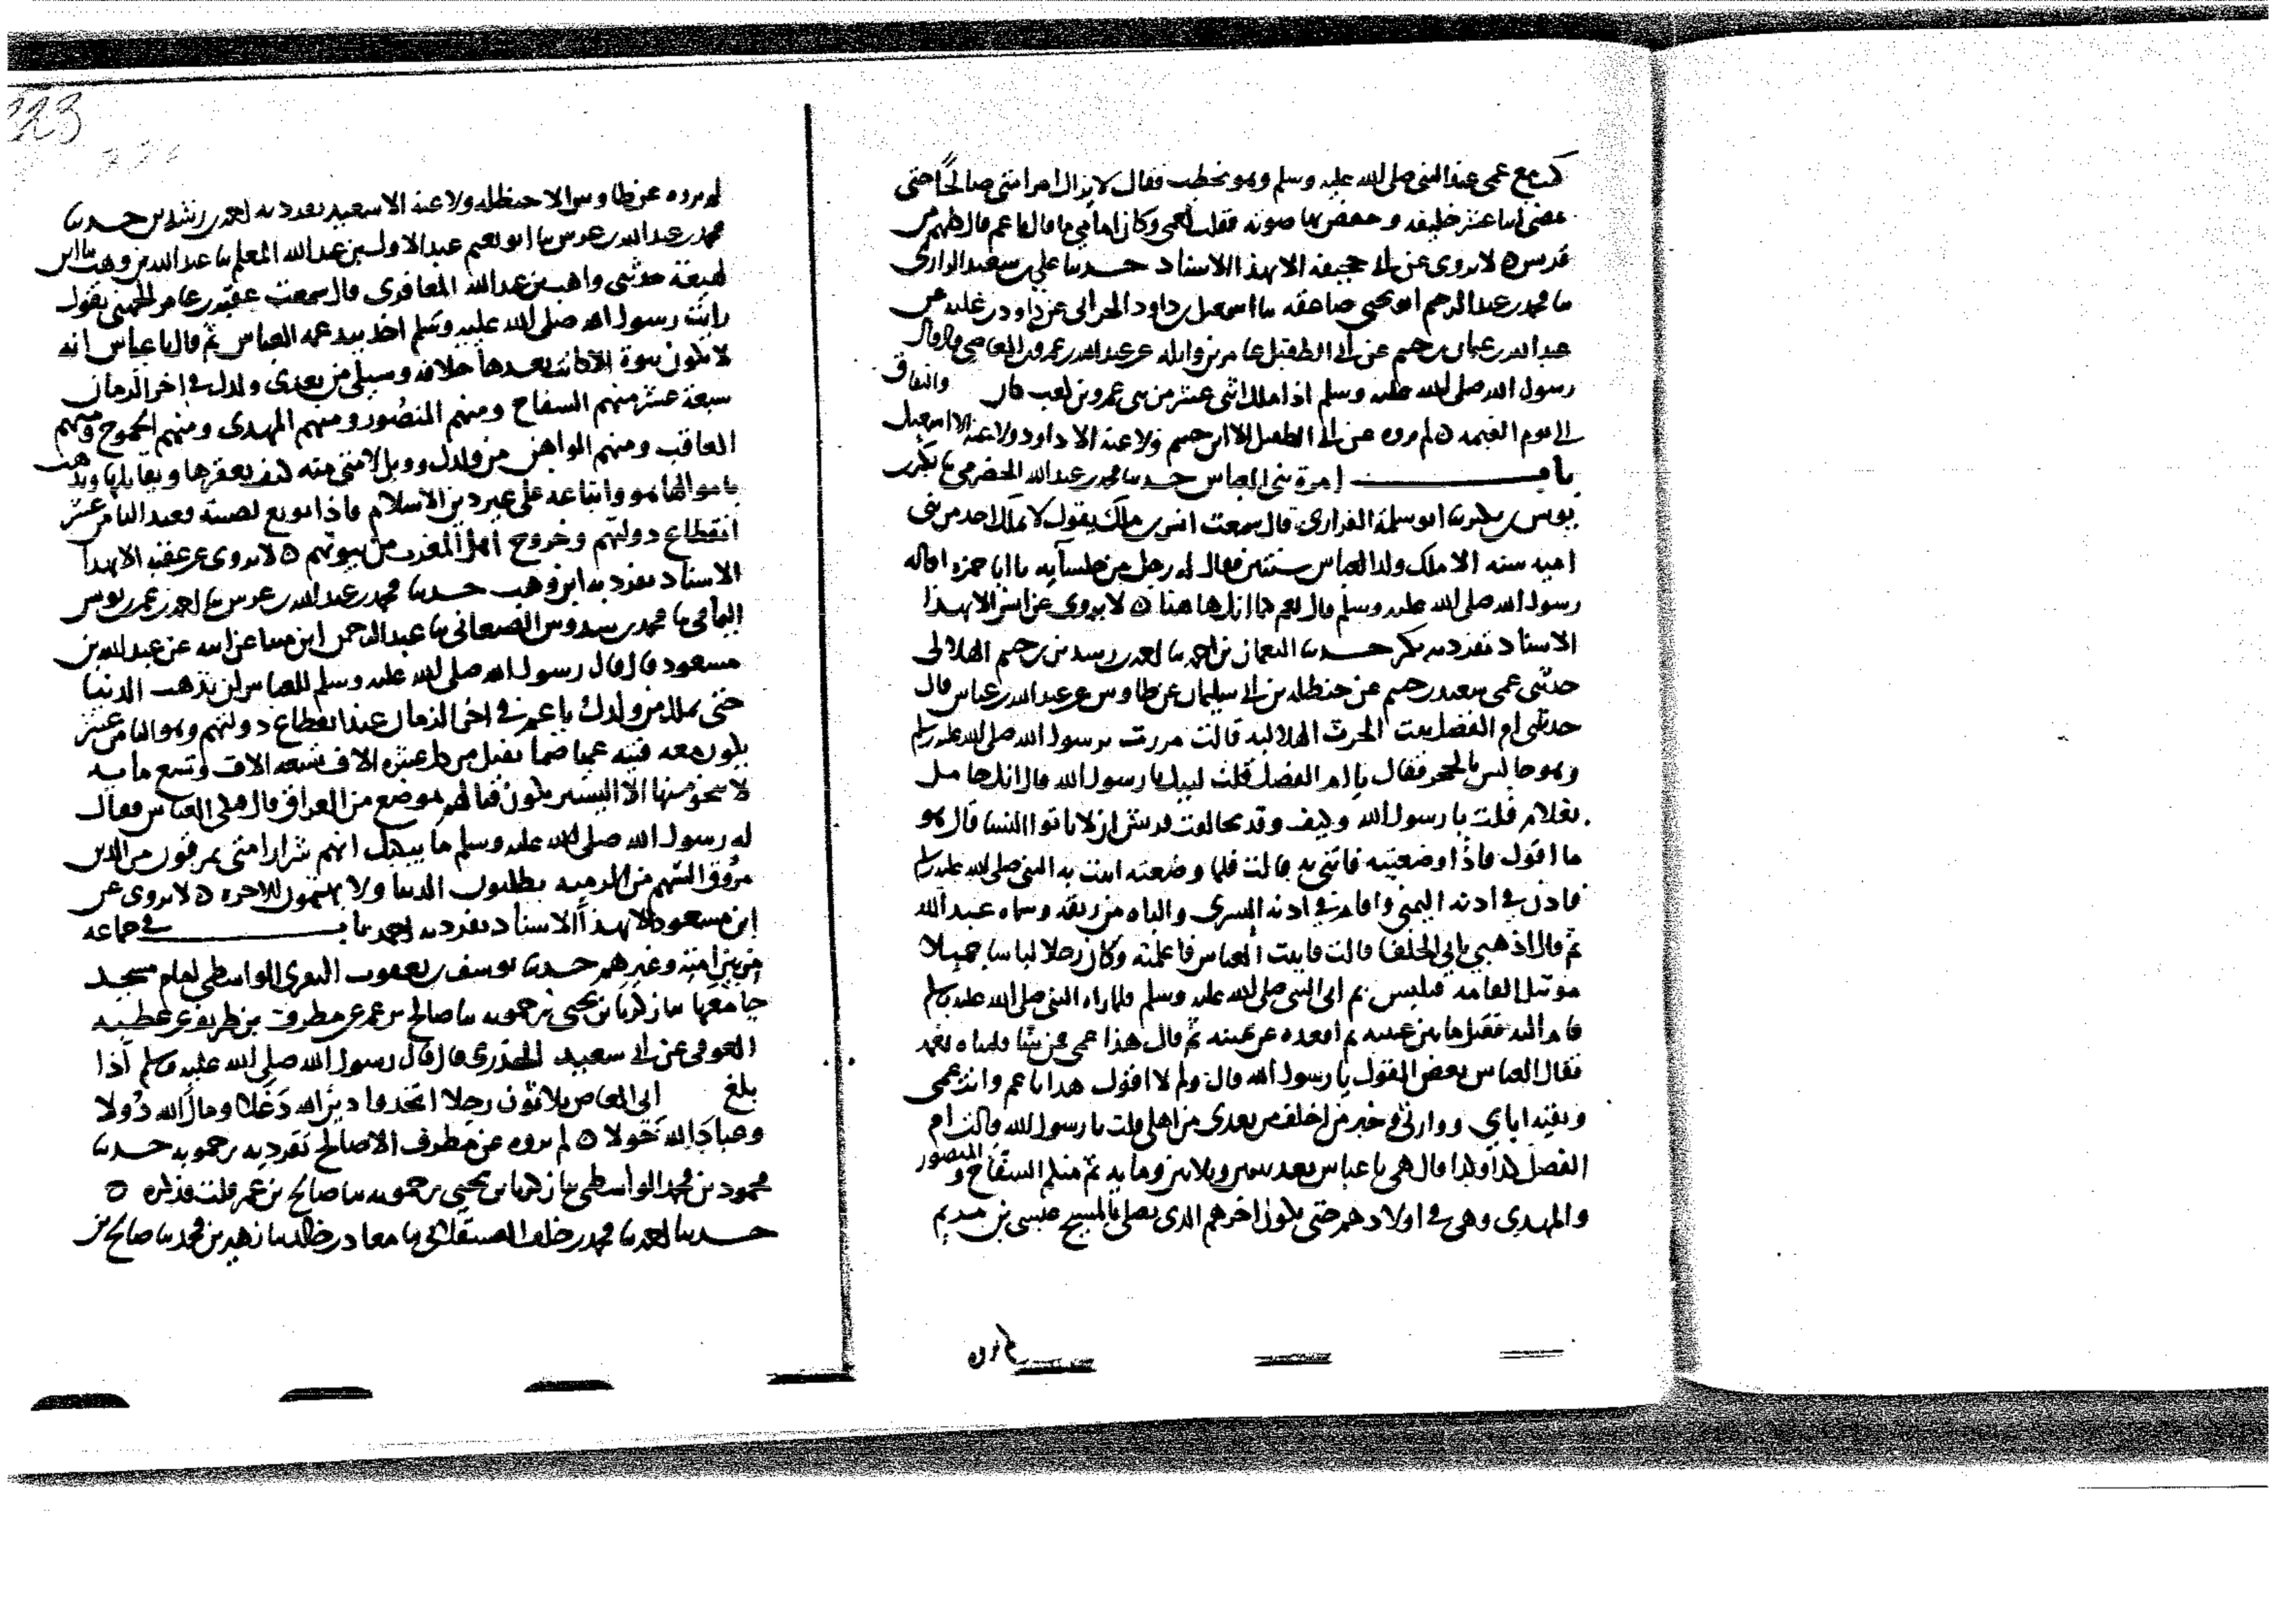 كنت مع عمي عند النبي صلى الله عليه وسلم وهو يخطب فقال لا يزال امر امتي صالحًا حتى
يمضي اثنا عشر خليفه وخفض بها صوته فقلت لعمي وكان امامي ما قال يا عم قال كلهم من
قريش ه لا يروى عن ابي جحيفه الا بهذا الاسناد حدثنا علي بن سعيد الرازي
نا محمد بن عبد الرحيم ابو يحيى صاعقه نا اسمعيل بن داود عن داود بن علبه عن
عبد الله بن عثمان بن خثيم عن ابي الطفيل عامر بن واثله عن عبد الله بن عمرو بن العاصي قال قال
رسول الله صلى الله عليه وسلم اذا ملك اثني عشر من بني عمرو بن كعب كان والنقاف
الى يوم القيمه ه لم يروه عن ابي الطفيل الا ابن خثيم ولا عنه الا داود ولا عنه الا اسمعيل
باب امرة بني العباس حدثنا محمد بن عبد الله الحضرمي نا بكر بن
يونس بن بكير نا ابو سلمة الفزاري قال سمعت انس بن ملك يقول لا يملك احد من بني
اميه سنه الا ملك ولد العباس سنتين فقال له رجل من جلسآيه يا ابا حمزه اقاله
رسول الله صلى الله عليه وسلم قال نعم كما انك هاهنا ه لا يروى عن انس الا بهذا
الاسناد تفرد به بكر حدثنا النعمان بن احمد نا احمد بن رشد بن خثيم الهلالي
حدثني عمي سعيد بن خثيم عن حنظله بن ابي سليمان عن طاوس عن عبد الله بن عباس قال
حدثتني ام الفضل بنت الحرث الهلاليه قالت مررت برسول الله صلى الله عليه وسلم
وهو جالس بالحجر فقال يا ام الفضل قلت لبيك يا رسول الله قال انك حامل
بغلام قلت يا رسول الله وكيف وقد تحالفت قريش ان لا ياتوا النسا قال هو
ما اقول فاذا وضعتيه فاتني به قالت فلما وضعته اتيت به النبي صلى الله عليه وسلم
فاذن في اذنه اليمنى واقام في اذنه اليسرى والباه من ريقه وسماه عبد الله
ثم قال اذهبي بابي الخلفا قالت فاتيت العباس فاعلمته وكان رجلا لباسا جميلا
القامه فلبس ثم اتى النبي صلى الله عليه وسلم فلما راه النبي صلى الله عليه وسلم
قام اليه فقبل ما بين عينيه ثم اقعده عن يمينه ثم قال هذا عمي فمن شا فليباه بعمه
فقال العباس بعض القول يا رسول الله قال ولم لا اقول هذا يا عم وانت عمي
وبقيه اباي ووارثي وخير من اخلف من بعدي من اهلي قلت يا رسول الله قالت ام
الفضل كذا وكذا قال هي يا عباس بعد ثنتين وثلاثين ومايه ثم منكم السفاح والمنصور
والمهدي وهي في اولادهم حتى يكون اخرهم الذي يصلي بالمسيح عيسى بن مريم
لم يروه عن طاوس الا حنظله ولا عنه الا سعيد تفرد به احمد بن رشد بن حدثنا
محمد بن عبد الله بن عرس نا ابو نعيم عبد الاول بن عبد الله المعلم نا عبد الله بن وهب نا ابن
لهيعة حدثني واهب بن عبد الله المعافري قال سمعت عقبه بن عامر الجهني يقول
رايت رسول الله صلى الله عليه وسلم اخذ بيد عمه العباس ثم قال يا عباس انه
لا يكون نبوة الا كانت بعدها خلافه وسيلي من بعدي ولدك في اخر الزمان
سبعة عشر منهم السفاح ومنهم المنصور ومنهم المهدي ومنهم الجموح ومنهم
العاقب ومنهم الواهن من ولدك وويل لامتي منه كيف يعقرها ويذهب
باموالها هو واتباعه على غير دين الاسلام فاذا بويع لصبيه فعند الثامن عشر
انقطاع دولتهم وخروج اهل المغرب من بيوتهم ه لا يروى عن عقبه الا بهذا
الاسناد تفرد به ابن وهب حدثنا محمد بن عبد الله بن عرس نا احمد بن محمد بن يونس
اليمامي نا محمد بن سدوس الصنعاني نا عبد الرحمن ابن مينا عن ابيه عن عبد الله بن
مسعود قال قال رسول الله صلى الله عليه وسلم للعباس لن تذهب الدنيا
حتى يملك من ولدك يا عم في اخر الزمان عند انقطاع دولتهم وهو الثامن عشر
يكون معه فتنه عميا صما يقتل من كل عشره الاف تسعه الاف وتسع مايه
لا ينجو منها الا اليسير يكون قتالهم بموضع من العراق قال فبكى العباس فقال
له رسول الله صلى الله عليه وسلم ما يبكيك انهم شرار امتي يمرقون من الدين
مروق السهم من الرميه يطلبون الدنيا ولا يهتمون للاخره ه لا يروى عن
ابن مسعود الا بهذا الاسناد تفرد به احمد باب في جماعه
من بني اميه وغيرهم حدثنا يوسف بن يعقوب المقري الواسطي امام مسجد
جامعها نا زكريا بن يحيى زحمويه نا صالح بن عمر عن مطرف بن طريف عن عطيه
العوفي عن ابي سعيد الخدري قال قال رسول الله صلى الله عليه وسلم اذا
بلغ ابي العاص ثلاثون رجلا اتخذوا دين الله دَغَلا ومال الله دُولا
وعباد الله خَولا ه لم يروه عن مطرف الا صالح تفرد به زحمويه حدثنا
محمود بن محمد الواسطي نا زكريا بن يحيى زحمويه نا صالح بن عمر قلت فذكره ه
حدثنا احمد نا محمد بن خلف العسقلاني نا معاذ بن خالد نا زهير بن محمد نا صالح بن